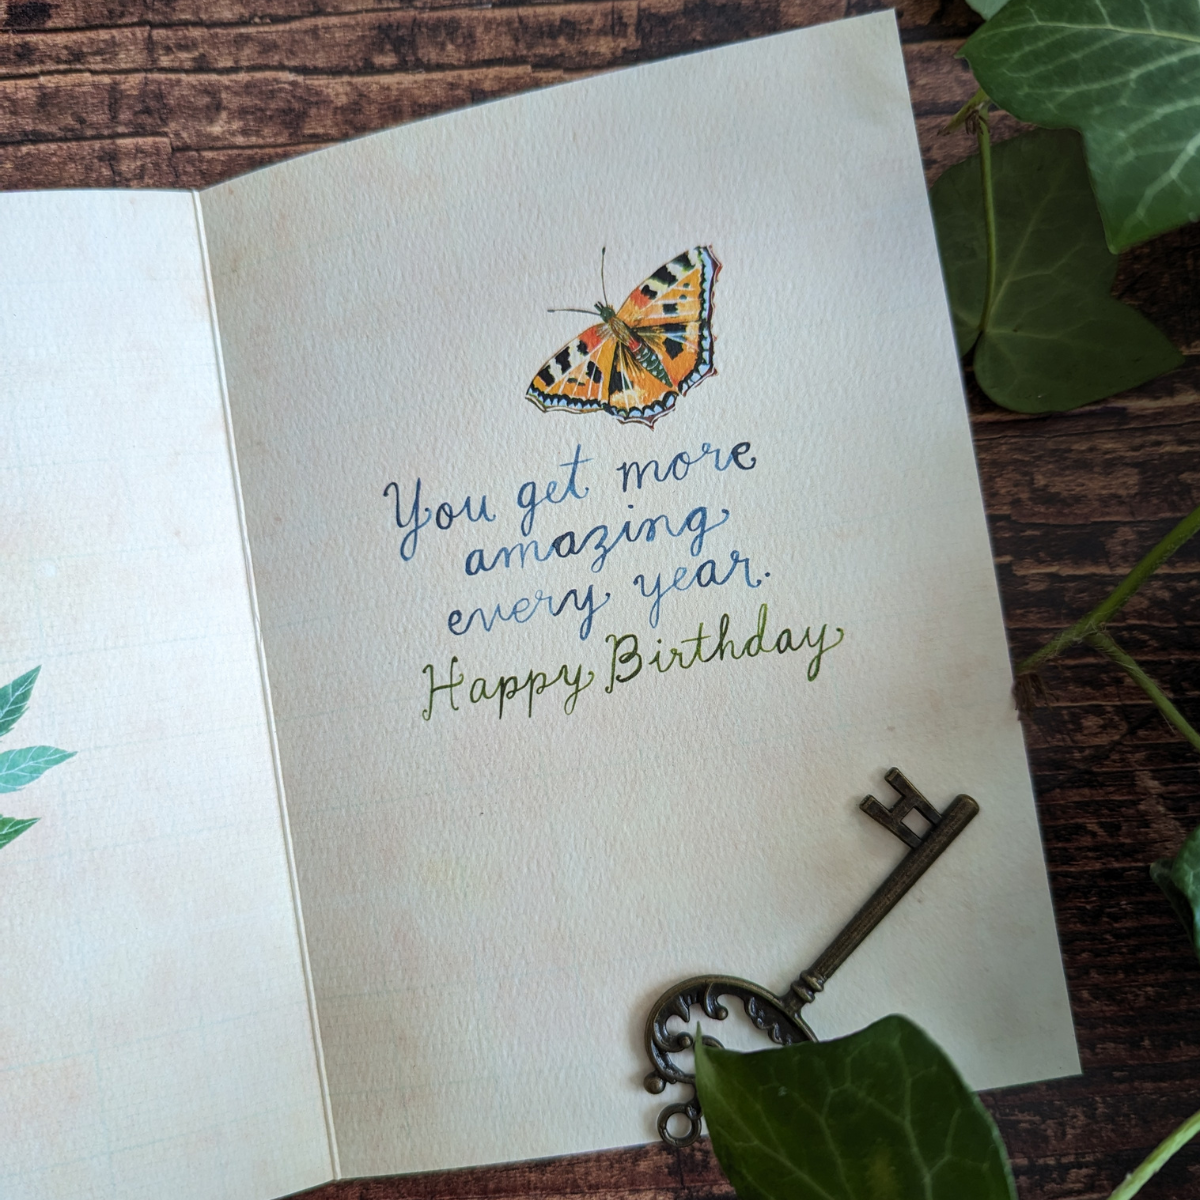 You get more
amazing
every year.
Happy Birthday